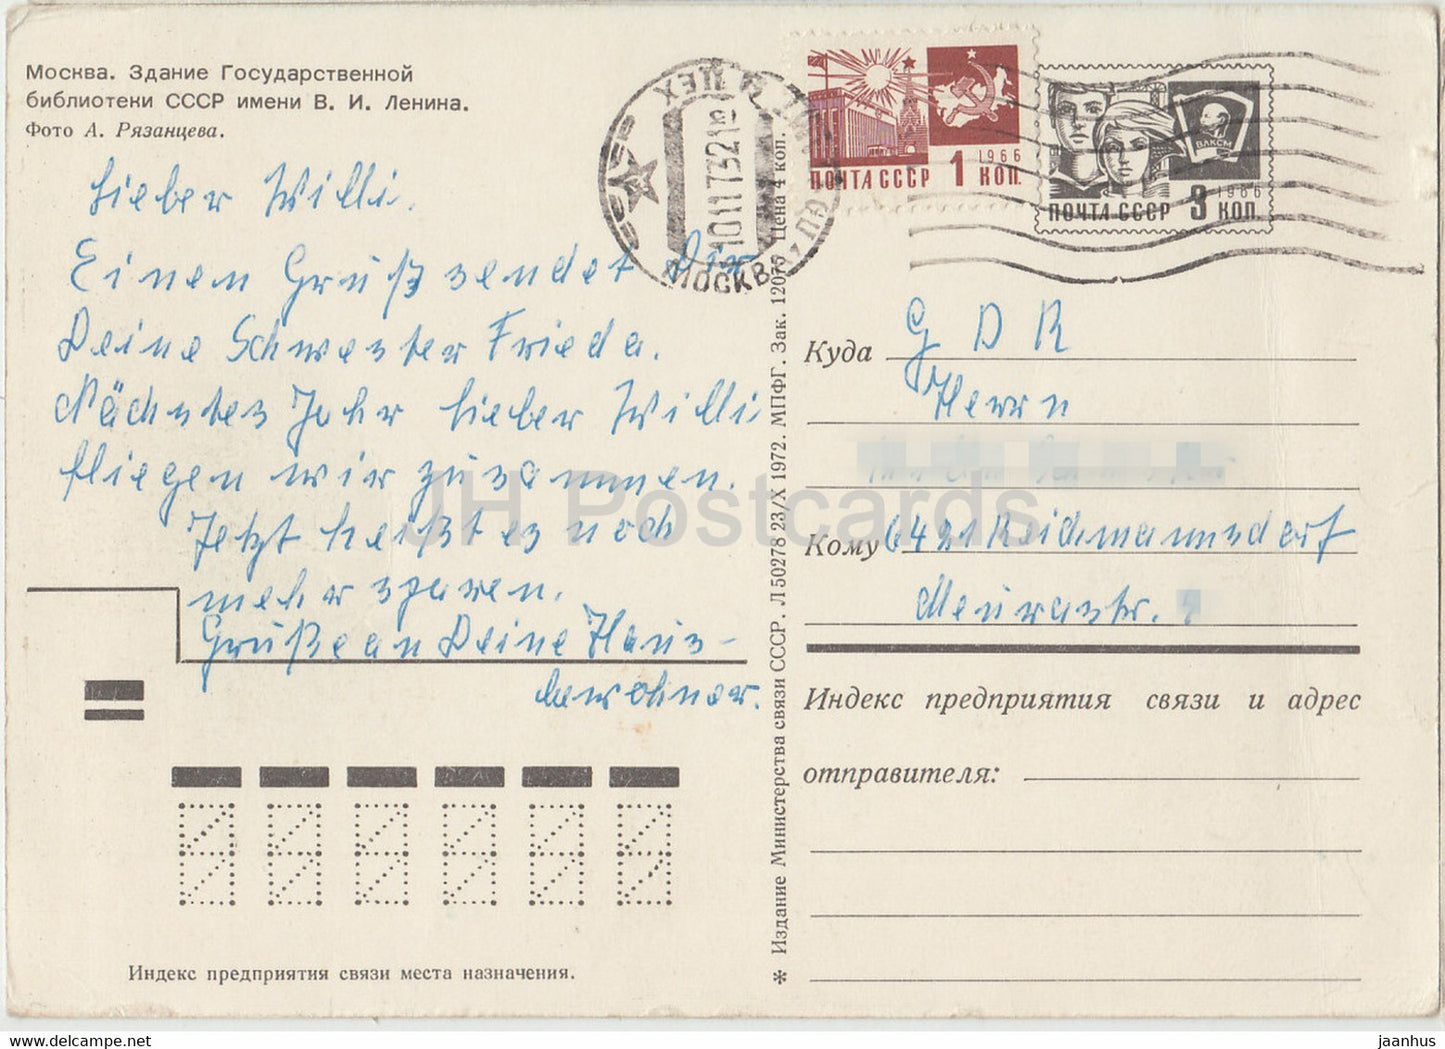 Москва. Здание Государственной
библиотеки СССР имени В. И. Ленина.
Фото А. Рязанцева.
Lieber Willi.
Einen Gruß sendet Dir
Deine Schwester Frieda.
Nächstes Jahr lieber Willi
fliegen wir zusammen.
Jetzt heißt es noch
mehr sparen.
Grüße an Deine Haus-
bewohner.
Индекс предприятия связи места назначения.
МОСКВА
10 11 73 21
1966
ПОЧТА СССР 1 КОП.
ВЛКСМ
1966
ПОЧТА СССР 3 КОП.
* Издание Министерства связи СССР. Л 50278 23/X 1972. МПФГ. Зак. 12075 Цена 4 коп.
Куда GDR
Herrn
Кому 6421 Reichmannsdorf
Meurastr.
Индекс предприятия связи и адрес
отправителя:
JH Postcards
delcampe.net
jaanhus